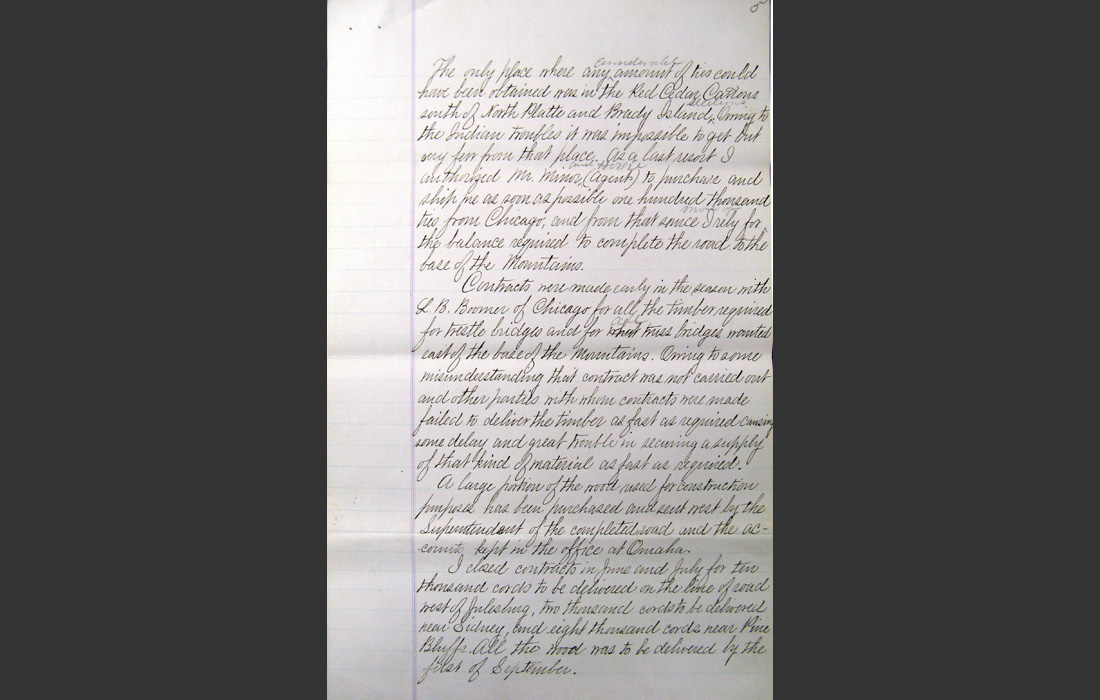 5
considerable
The only place where any amount of ties could
have been obtained was in the Red Cedar Canons
stations
south of North Platte and Brady Island, Owing to
the Indian troubles it was impossible to get but
very few from that place. As a last resort I
and
authorized Mr. Minor, (Agent) to purchase and
ship me as soon as possible one hundred thousand
ties from Chicago; and from that source I rely for
the balance required to complete the road to the
base of the Mountains.
Contracts were made early in the season with
L. B. Boomer of Chicago for all the timber required
for trestle bridges and for truss bridges wanted
east of the base of the Mountains. Owing to some
misunderstanding that contract was not carried out
and other parties with whom contracts were made
failed to deliver the timber as fast as required causing
some delay and great trouble in securing a supply
of that kind of material as fast as required.
A large portion of the wood used for construction
purposes has been purchased and sent west by the
Superintendent of the completed road and the ac-
-counts kept in the office at Omaha.
I closed contracts in June and July for ten
thousand cords to be delivered on the line of road
west of Julesburg, two thousand cords to be delivered
near Sidney, and eight thousand cords near Pine
Bluffs. All the wood was to be delivered by the
first of September.